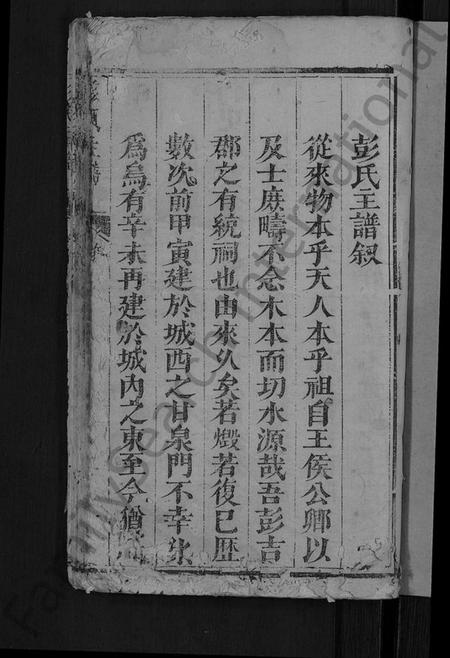 彭氏主譜叙
從來物本乎天人本乎祖自王侯公卿以
及士庶疇不念木本而切水源哉吾彭吉
郡之有統祠也由來久矣若燬若復已歷
數次前甲寅建於城西之甘泉門不幸
為烏有辛未再建於城內之東至今猶
FamilySearch International